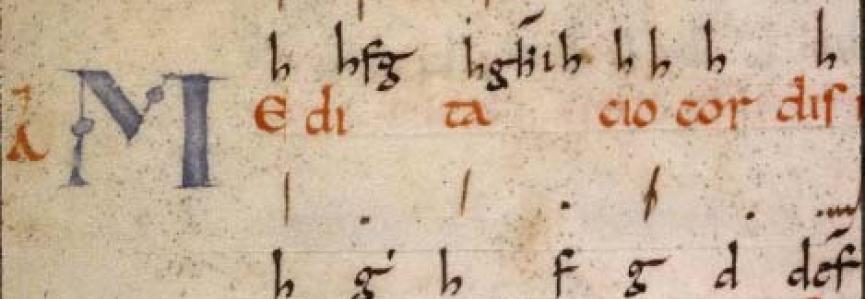 h hfg hgkih h h h h
A M E di ta cio cor dis
h g h f g d def